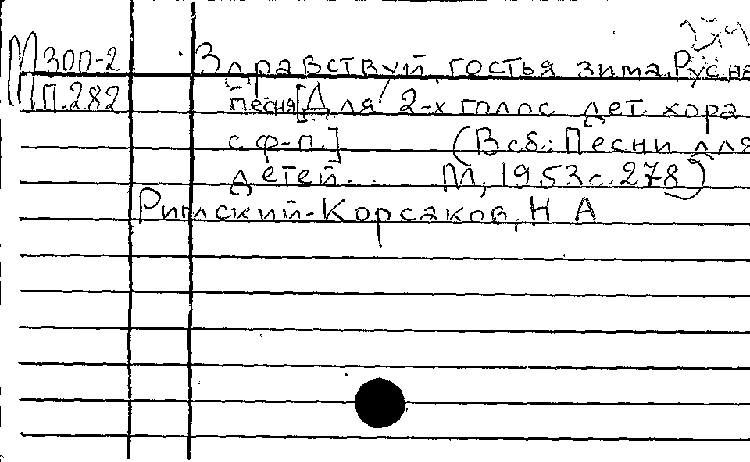 М 300-2 Здравствуй, гостья зима. Рус. на
П.282 песня [Для 2-х голос. дет. хора
с ф-п.] (В сб.: Песни для
детей... М, 1953 с. 278)
Римский-Корсаков, Н А